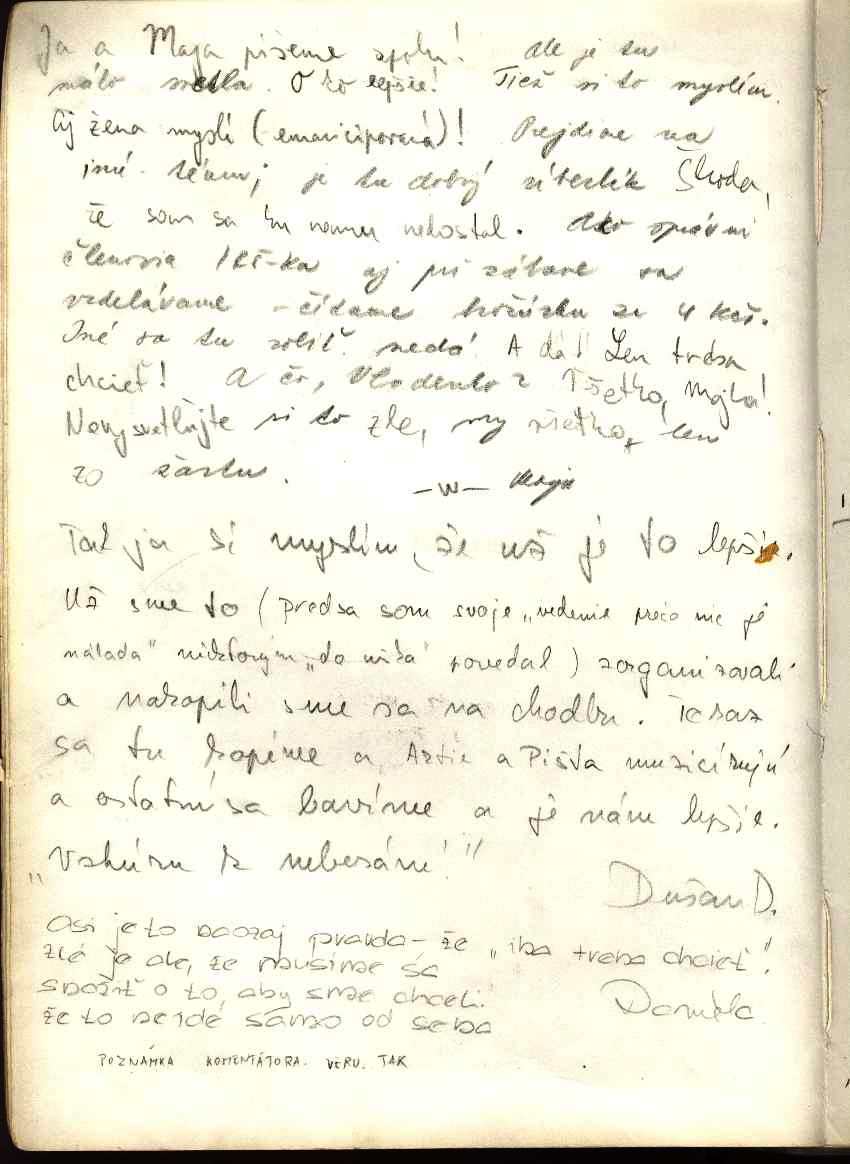 Ja a Maja píšeme spolu! Ale je tu
málo svetla. O to lepšie! Tiež si to myslím.
Aj žena myslí (emancipovaná)! Prejdime na
inú tému; je tu dobrý Škoda,
že som sa ku nemu nedostal. Ako správni
členovia aj pri zábave sa
vzdelávame - čítame zo 4 kat.
Iné sa tu robiť nedá. A dá! Len treba
chcieť! A čo, Vladenko? Všetko, Majka!
Nevysvetľujte si to zle, my všetko, len
zo žartu.
-W- Maja
Tak ja si myslím, že už je to lepšie.
Už sme to (predsa som svoje „vedenie prečo nie je
nálada" niektorým „do povedal) zorganizovali
a nakopili sme sa na chodbu. Teraz
sa tu kopíme a Artie a Pišta muzicírujú
a ostatní sa bavíme a je nám lepšie.
„Vzhúru k nebesám!"
Dušan D.
Asi je to naozaj pravda - že „iba treba chcieť".
Zlé je ale, že musíme sa
snažiť o to, aby sme chceli.
Že to nejde samo od seba
Daniela
POZNÁMKA KOMENTÁTORA. VERU. TAK